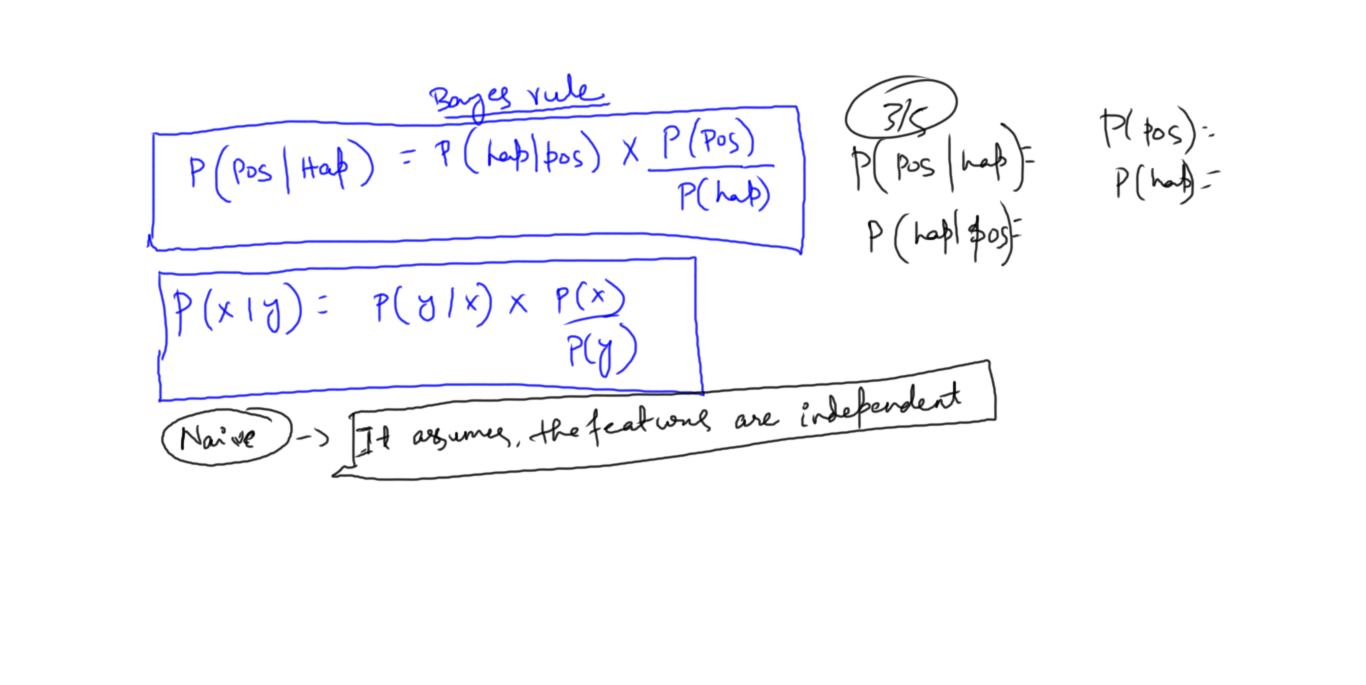 Bayes rule
P(Pos | Hap) = P(hap|pos) X P(Pos)
P(hap)
P(x|y) = P(y/x) x P(x)
P(y)
Naive -> It assumes, the features are independent
3/5
P(pos | hap)=
P(hap| pos)=
P(pos)=
P(hap)=